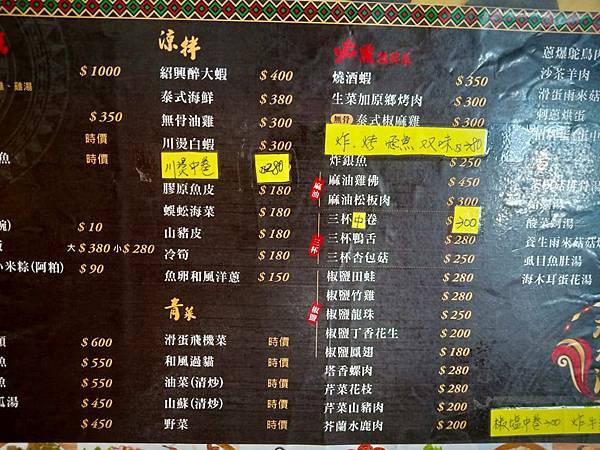 $1000
雞湯
$350
時價
魚 時價
$10
大$380 小$280
小米粽(阿粕) $90
$600
魚 $550
魚 $550
瓜湯 $450
$450
涼拌
紹興醉大蝦 $400
泰式海鮮 $380
無骨油雞 $300
川燙白蝦 $300
川燙中卷 280
膠原魚皮 $180
蜈蚣海菜 $180
山豬皮 $180
冷筍 $180
魚卵和風洋蔥 $150
青菜
滑蛋飛機菜 時價
和風過貓 時價
油菜(清炒) 時價
山蘇(清炒) 時價
野菜 時價
燒酒蝦 $350
生菜加原鄉烤肉 $300
無骨 泰式椒麻雞
炸、烤 魚 双味 280
炸銀魚 $250
麻油
麻油雞佛 $450
麻油松板肉 $300
三杯
三杯中卷 300
三杯鴨舌 $280
三杯杏包菇 $250
椒鹽
椒鹽田蛙 $280
椒鹽竹雞 $280
椒鹽龍珠 $250
椒鹽丁香花生 $200
椒鹽鳳翅 $180
塔香螺肉 $280
芹菜花枝 $280
芹菜山豬肉 $200
芥蘭水鹿肉 $200
蔥爆鴕鳥肉
沙茶羊肉
滑蛋雨來菇
刺蔥烘蛋
酸菜
養生雨來菇
虱目魚肚湯
海木耳蛋花湯
椒塩中卷300 炸